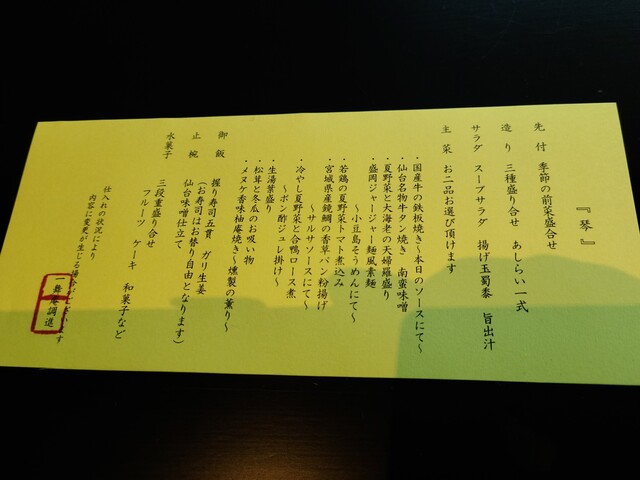 『琴』
先付 季節の前菜盛合せ
造り 三種盛り合せ あしらい一式
サラダ スープサラダ 揚げ玉蜀黍 旨出汁
主菜 お二品お選び頂けます
・国産牛の鉄板焼き～本日のソースにて～
・仙台名物牛タン焼き 南蛮味噌
・夏野菜と大海老の天婦羅盛り
・盛岡ジャージャー麺風素麺
～小豆島そうめんにて～
・若鶏の夏野菜トマト煮込み
・宮城県産鏡鯛の香草パン粉揚げ
～サルサソースにて～
・冷やし夏野菜と合鴨ロース煮
～ポン酢ジュレ掛け～
・生湯葉盛り
・松茸と冬瓜のお吸い物
・メヌケ香味柚庵焼き～燻製の薫り～
御飯 握り寿司五貫 ガリ生姜
（お寿司はお替り自由となります）
止椀 仙台味噌仕立て
水菓子 三段重盛り合せ
フルーツ ケーキ 和菓子など
仕入れの状況により
内容に変更が生じる場合がございます
調進